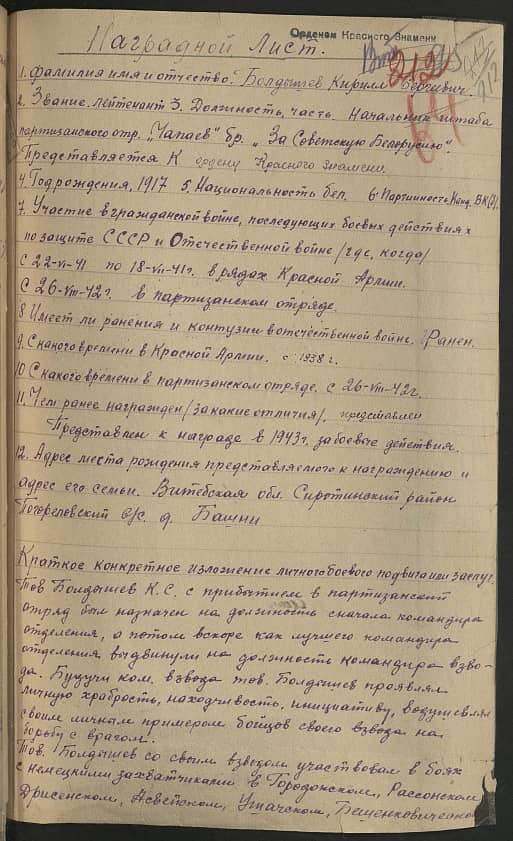 Орденом Красного Знамени
Наградной Лист.
212
212
1. Фамилия имя и отчество. Болдышев Кирилл Сергеевич.
2. Звание. лейтенант 3. Должность, часть. Начальник штаба
партизанского отр. „Чапаев" бр. „За Советскую Белорусию".
Представляется К ордену Красного Знамени.
4. Год рождения. 1917 5. Национальность бел. 6. Партийность Канд. ВКП(б).
7. Участие в гражданской войне, последующих боевых действиях
по защите СССР и Отечественной войне /где, когда/
с 22-VI-41 по 18-VII-41г. в рядах Красной Армии.
с 26-VIII-42г. в партизанском отряде.
8. Имеет ли ранения и контузии в отечественной войне. Ранен.
9. С какого времени в Красной Армии. с 1938 г.
10 С какого времени в партизанском отряде. с 26-VIII-42г.
11. Чем ранее награжден /за какие отличия/. представлен
Представлен к награде в 1943г. за боевые действия.
12. Адрес места рождения представляемого к награждению и
адрес его семьи. Витебская обл. Сиротинский район
с/с. д. Башни
Краткое конкретное изложение личного боевого подвига или заслуг.
Тов Болдышев К.С. с прибытием в партизанский
отряд был назначен на должность сначала командира
отделения, а потом вскоре как лучшего командира
отделения выдвинули на должность командира взво-
да. Будучи ком. взвода тов. Болдышев проявлял
личную храбрость, находчивость, инициативу, водушевлял
своим личным примером бойцов своего взвода на
борьбу с врагом.
Тов. Болдышев со своим взводом участвовал в боях
с немецкими захватчиками в Городокском, Россонском,
Дрисенском, Освейском, Ушачском, Бешенковическом